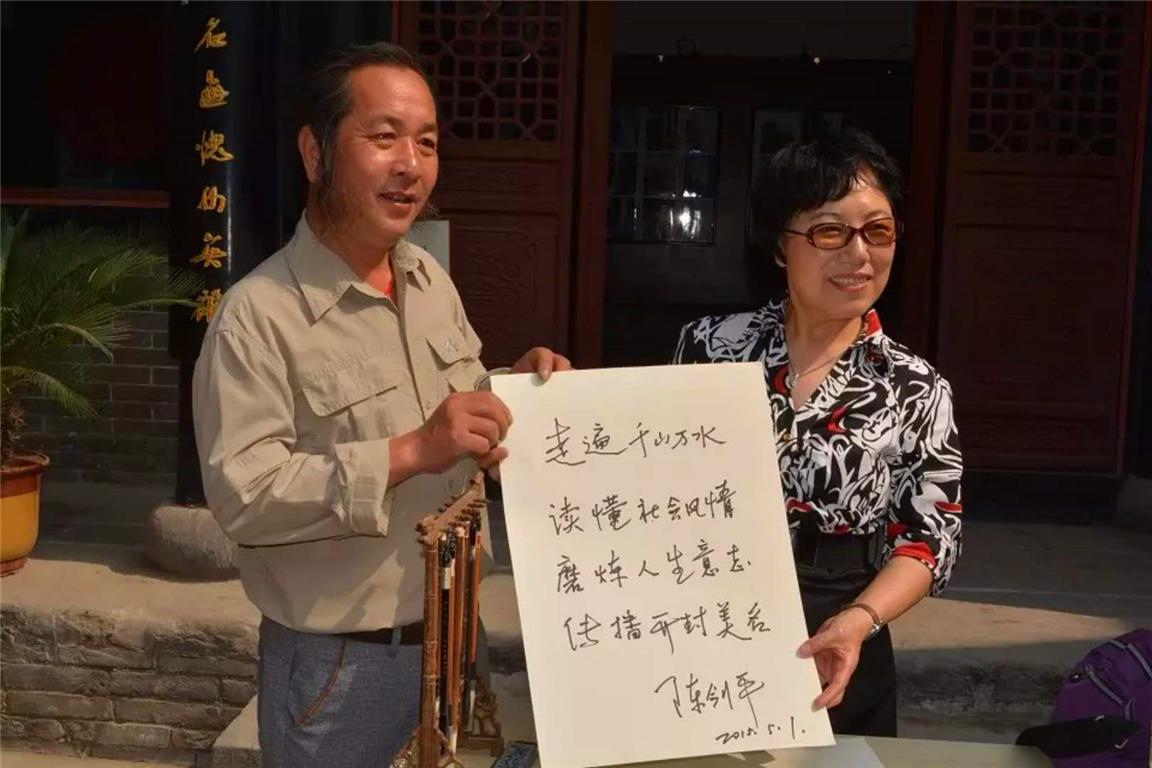 名无愧仰英雄
走遍千山万水
读懂社会风情
磨炼人生意志
传播开封美名
陈剑平
2015.5.1.